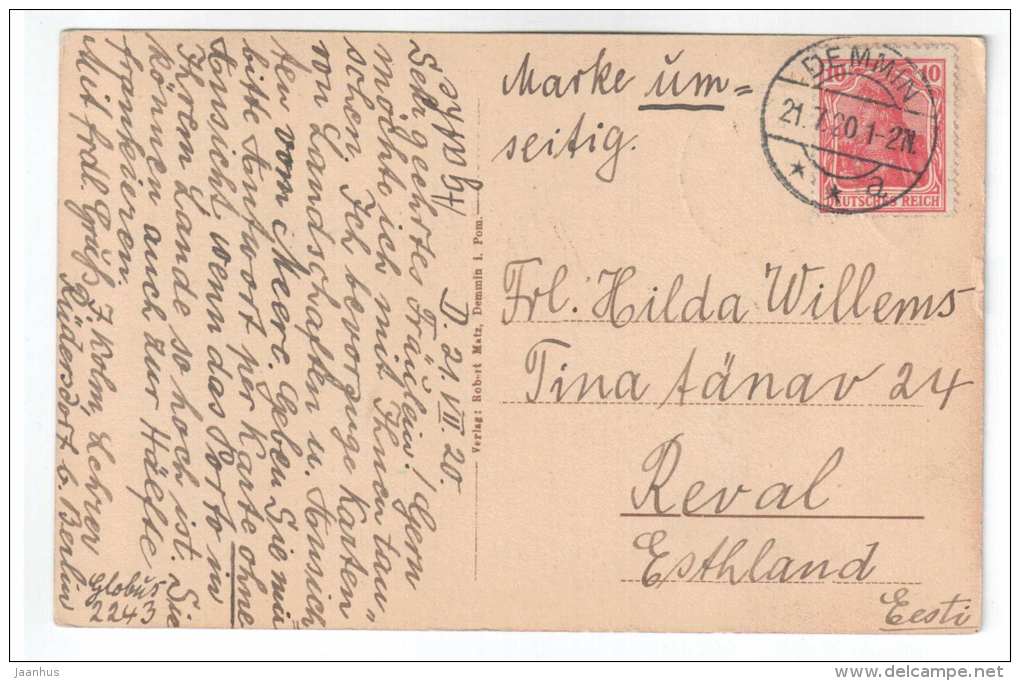 Marke um=
seitig.
DEMMIN
21.7.20.1-2N.
* * a
10 10
DEUTSCHES REICH
Frl. Hilda Willems
Tina tänav 24
Reval
Esthland
Eesti
Verlag: Robert Matz, Demmin i. Pom.
D. 21. VII. 20.
Sehr geehrtes Fräulein! Gern
möchte ich mit Ihnen tau-
schen. Ich bevorzuge Karten
von Landschaften u. Ansich
ten vom Meere. Geben Sie mir
bitte Antwort per Karte ohne
Ansicht wenn das Porto in
Ihrem Lande so hoch ist. Sie
können auch zur Hälfte
frankieren.
Mit frdl. Gruß Kolm, Lehrer
Rüdersdorf b. Berlin
Globus
2243
jaanhus
www.delcampe.net